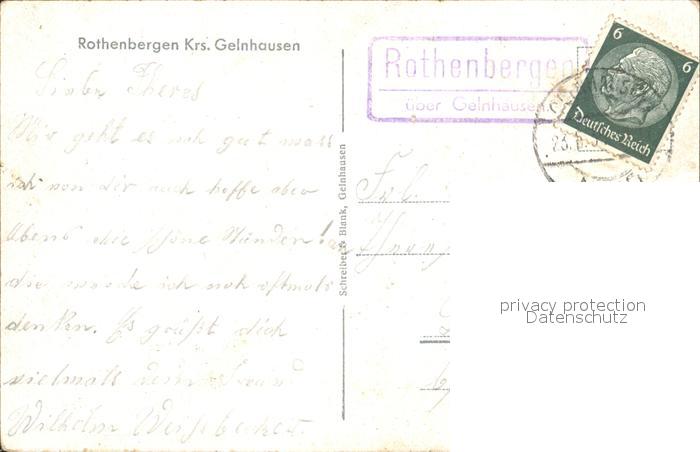 Rothenbergen Krs. Gelnhausen
Rothenbergen
über Gelnhausen
6 6
Deutsches Reich
Liebe Theres
Mir geht es noch gut was
ich von dir auch hoffe aber
Abend die schöne Stunden!
die werde ich noch oftmals
denken. Es grüßt dich
vielmals dein Freund
Wilhelm
Schreiber & Blank, Gelnhausen
Frl.
privacy protection
Datenschutz